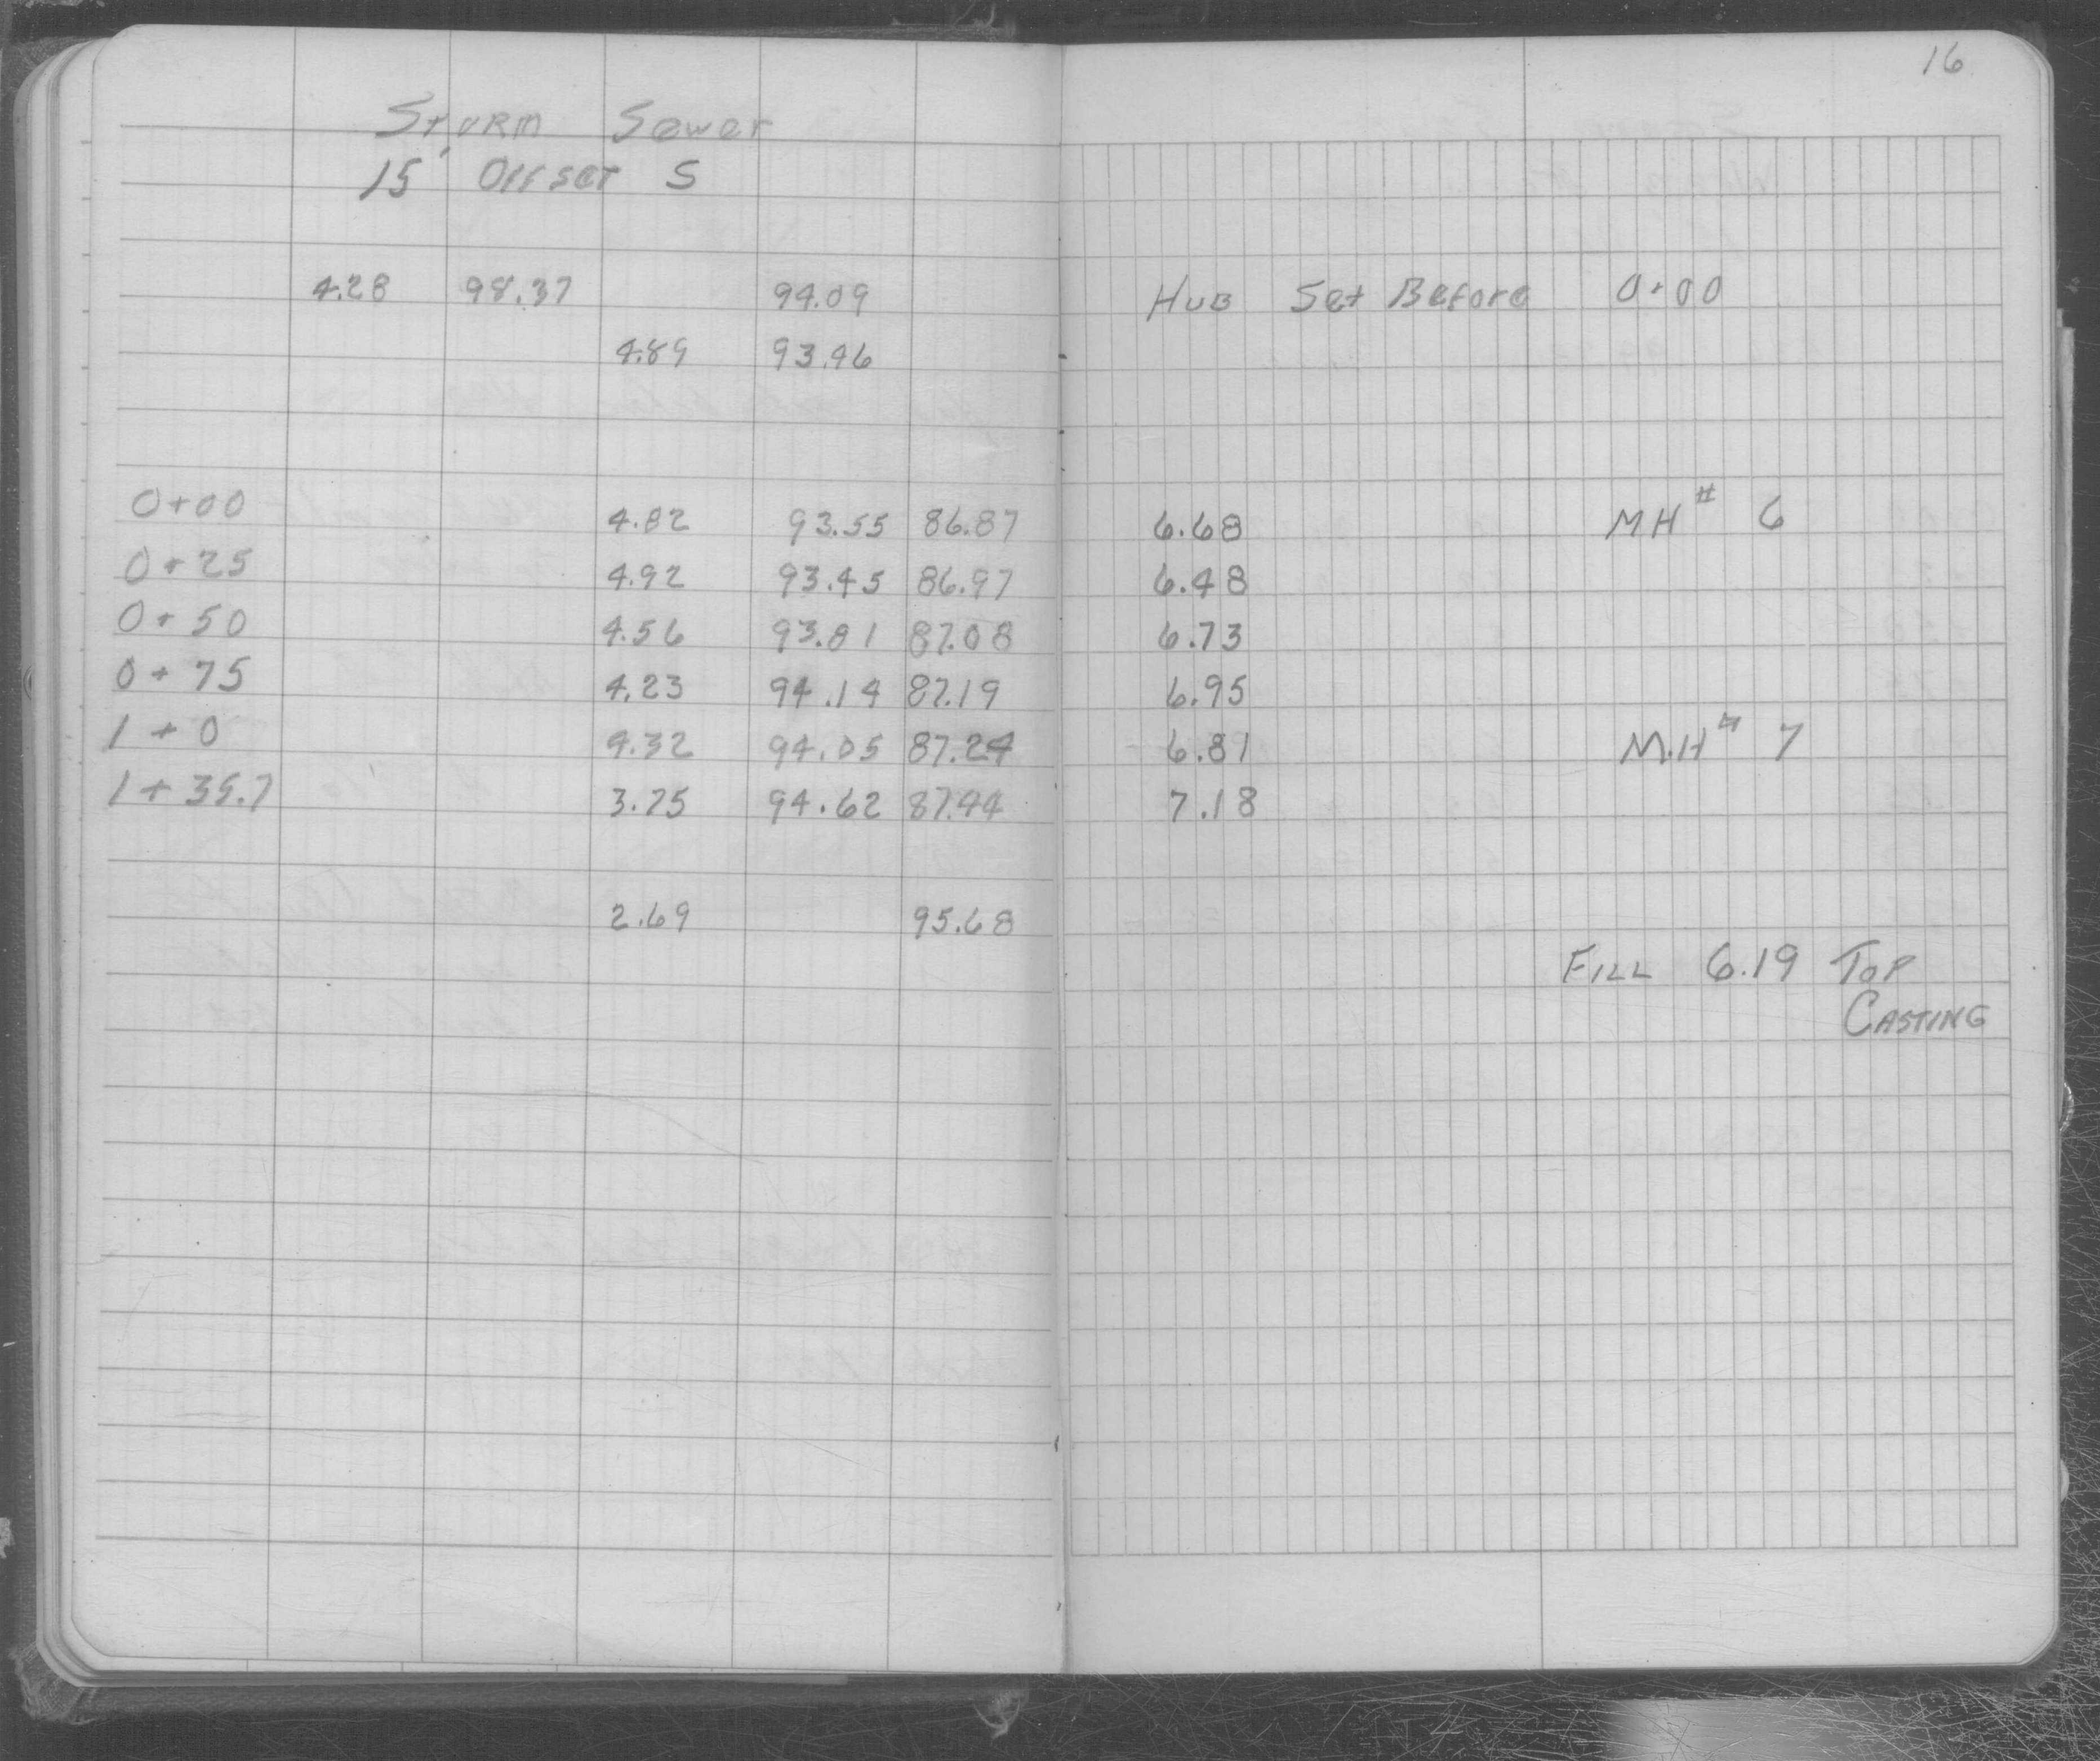 16
Sturm Sewer
15' Offset S
4.28 98.37 94.09 Hub Set Before 0+00
4.89 93.46
0+00 4.82 93.55 86.87 6.68 MH # 6
0+25 4.92 93.45 86.97 6.48
0+50 4.56 93.81 87.08 6.73
0+75 4.23 94.14 87.19 6.95
1+0 4.32 94.05 87.24 6.81 M.H # 7
1+35.7 3.75 94.62 87.44 7.18
2.69 95.68
FILL 6.19 TOP
CASTING